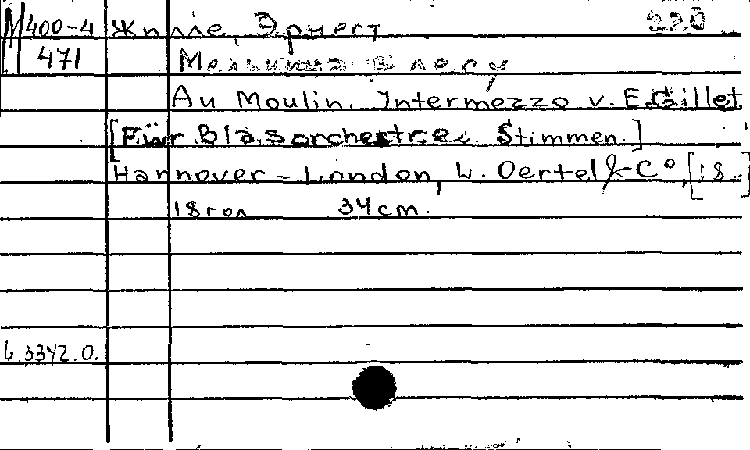 М 400-4 Жилле, Эрнест 220
471 Мельница в лесу
Au Moulin. Intermezzo v. E. Gillet
[Für Blasorchester. Stimmen.]
Hannover - London, L. Oertel & Co, [18..]
18 гол 34 cm.
L. 3342.0.